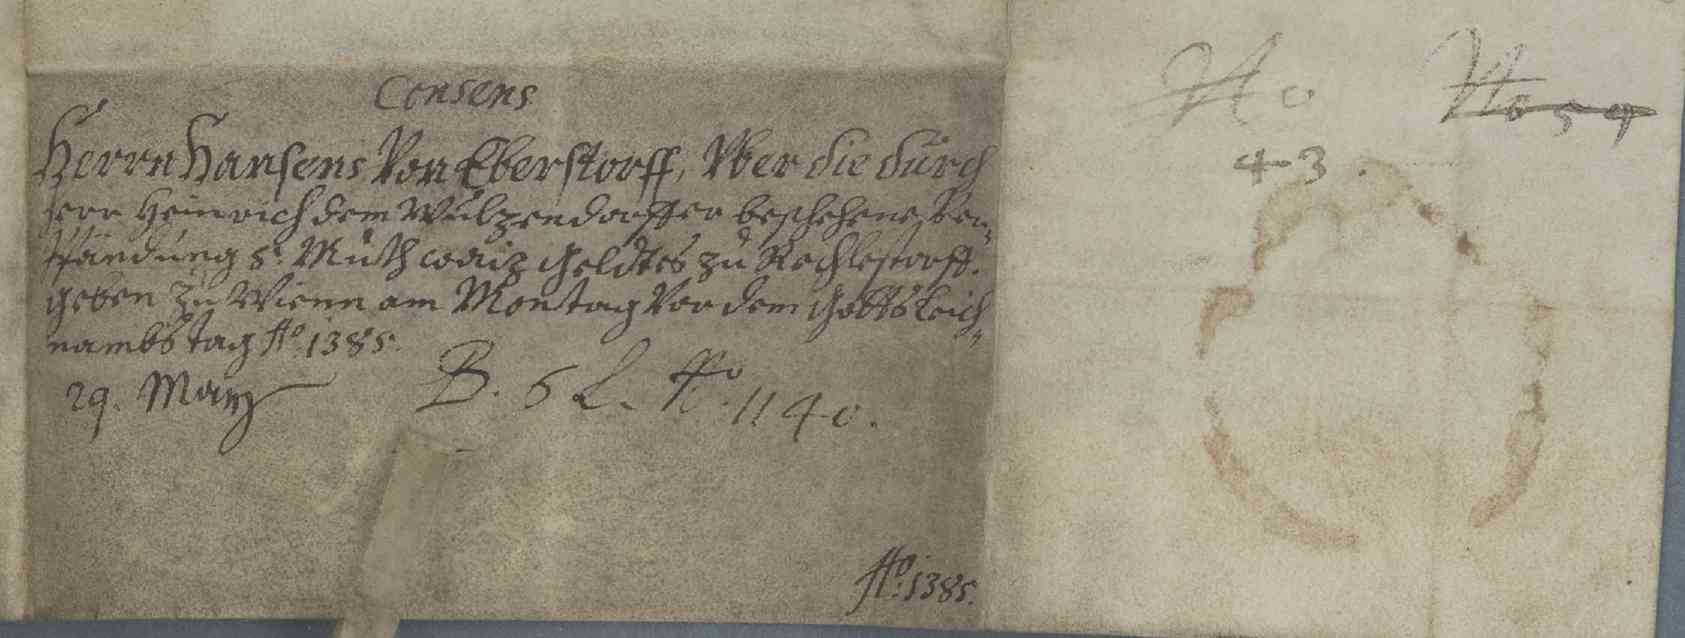 Consens
Herrn Hansens Von Eberstorff, Vber die dürch
herr Heinrich dem Wülzendorffer beschehene Ver„
Pfändüng 5. Müth waiz geldtes zü Rechlestorff.
geben zü Wienn am Montag Vor dem Gottsleich„
nambs tag Ao. 1385.
29. May
B. 6 L. No. 1140.
Ao. 1385.
No
43
No 59